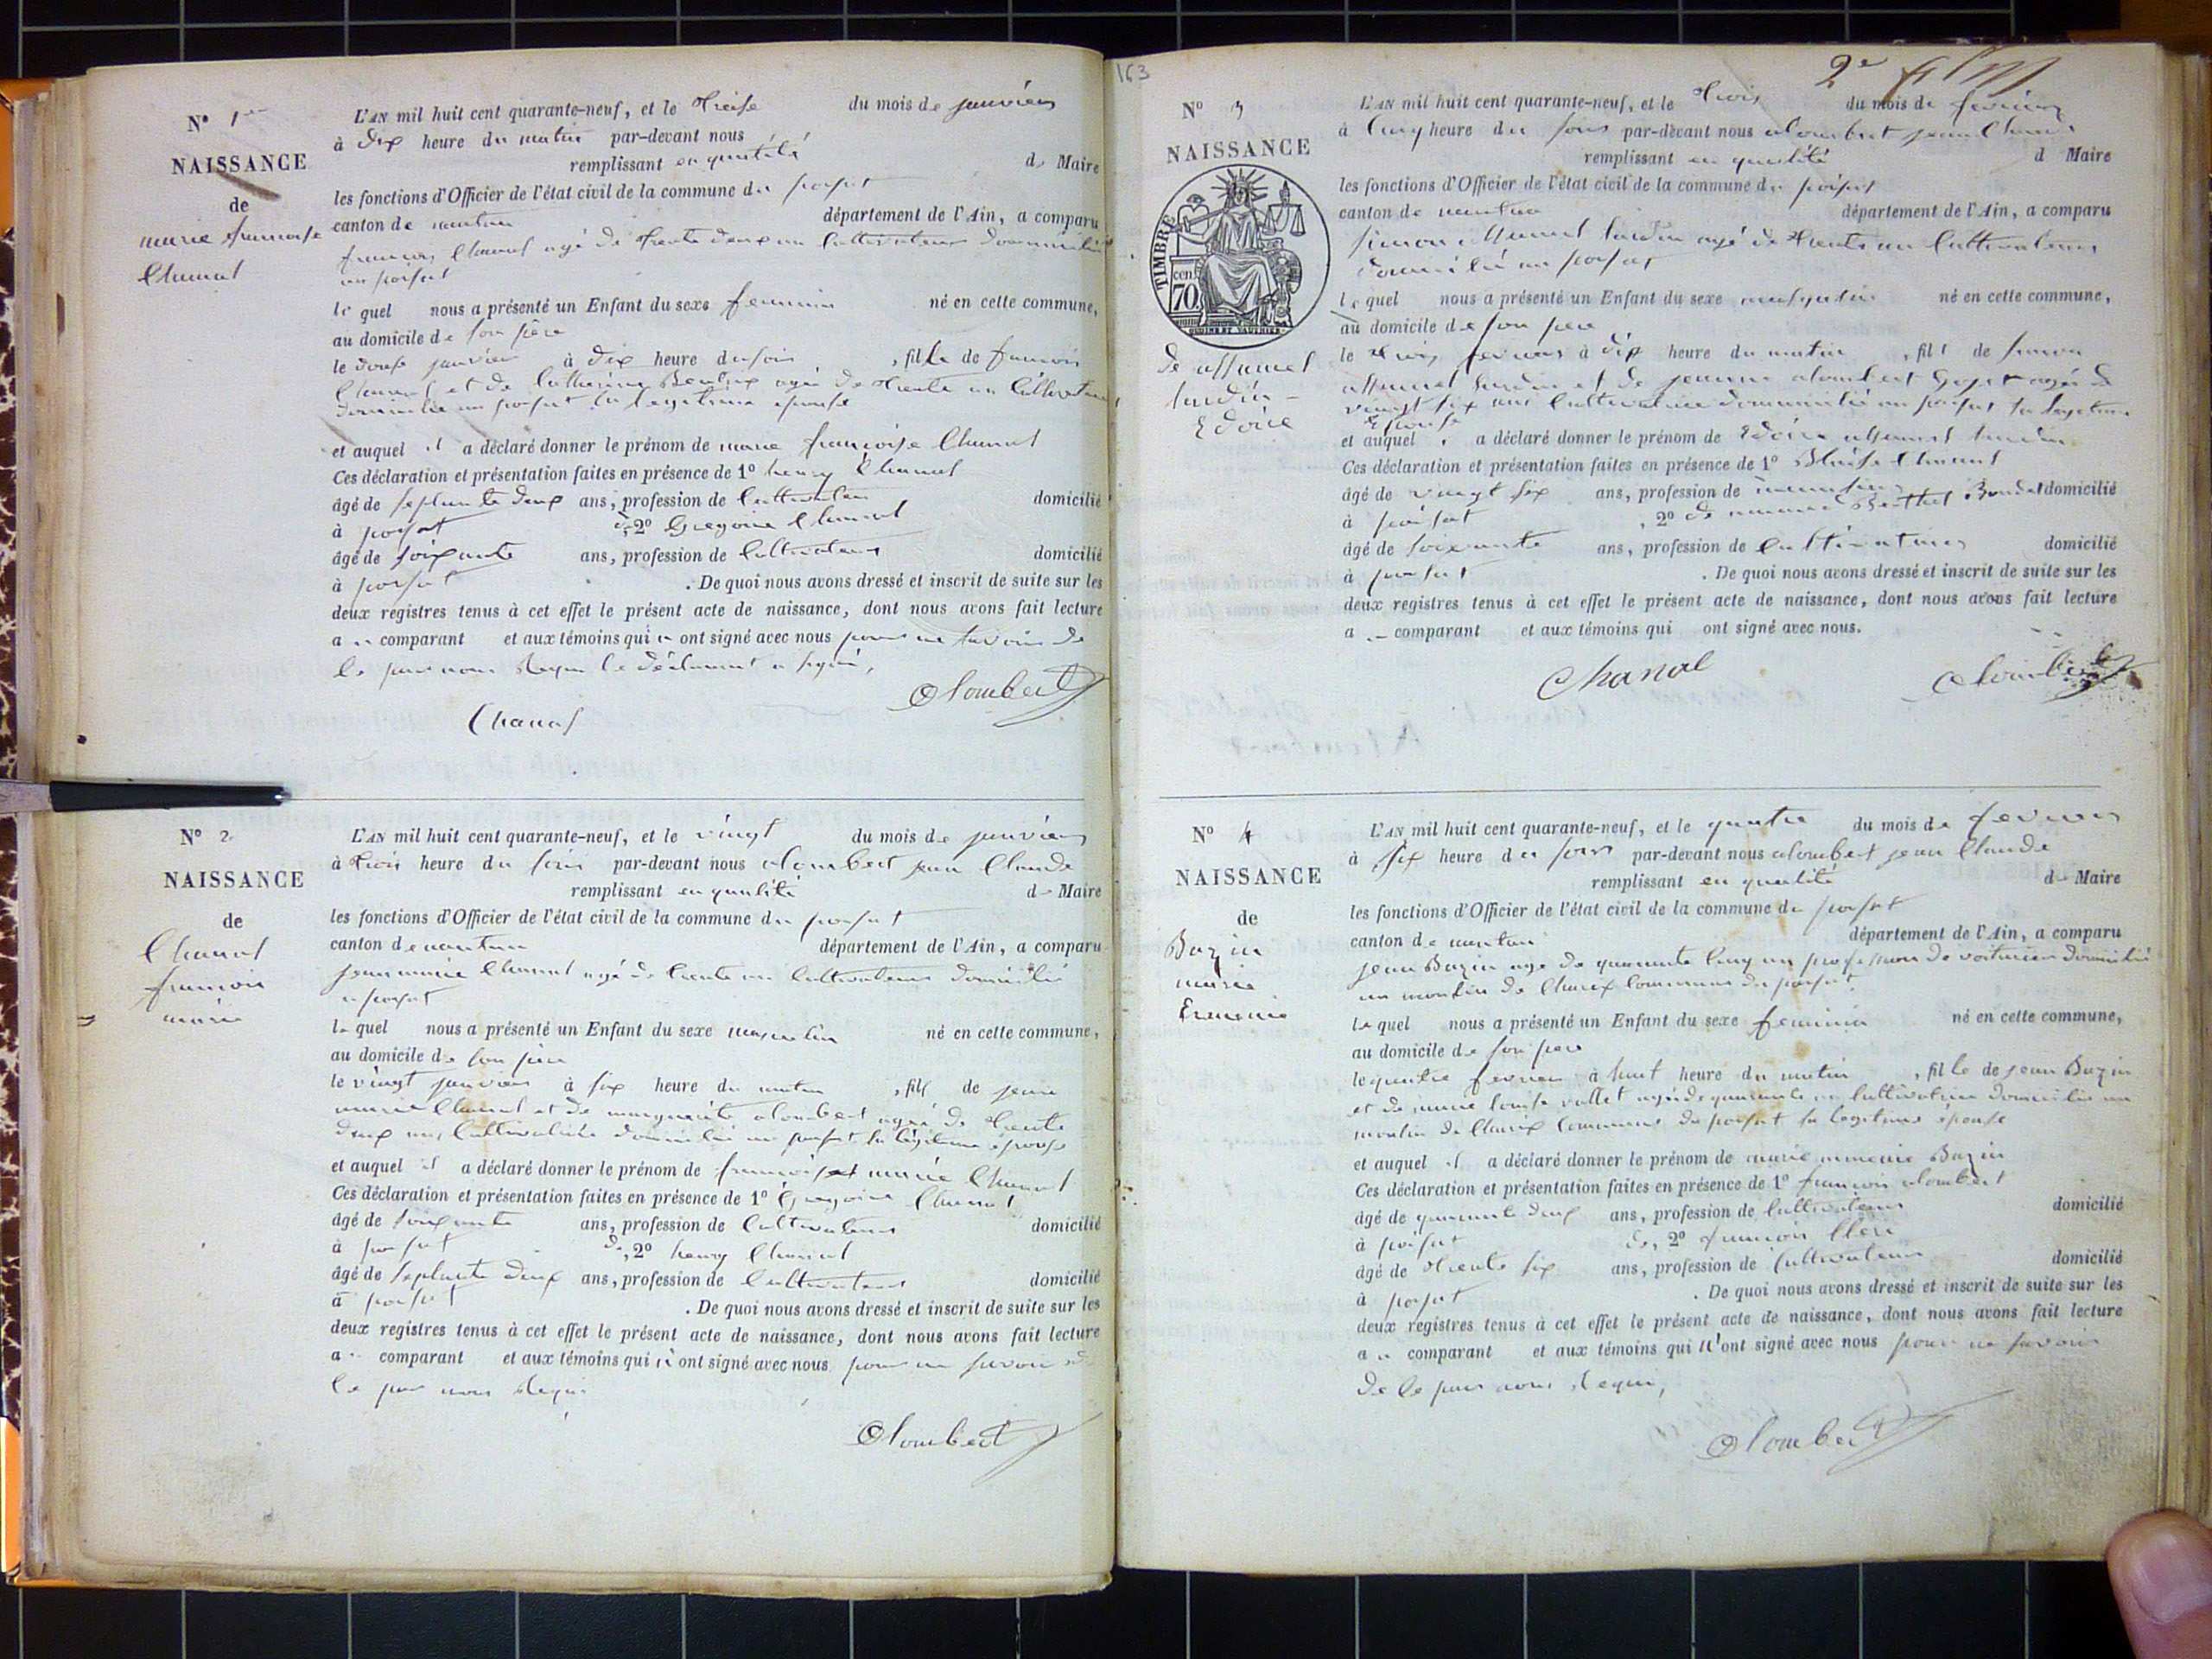 N° 1er
NAISSANCE
de
marie francoise
Chanal
L'AN mil huit cent quarante-neuf, et le treise du mois de janvier
à dix heure du matin par-devant nous
remplissant en qualité de Maire
les fonctions d'Officier de l'état civil de la commune du
canton de nantua département de l'Ain, a comparu
francois Chanal agé de trente deux an Cultivateur domicilié
au
le quel nous a présenté un Enfant du sexe feminin né en cette commune,
au domicile de son père
le douse janvier à dix heure du soir , fille de francois
Chanal et de Catherine agée de trente an Cultivatrice
domicilié au sa legitime épouse
et auquel il a déclaré donner le prénom de marie françoise Chanal
Ces déclaration et présentation faites en présence de 1° henry Chanal
âgé de septante deux ans, profession de Cultivateur domicilié
à de, 2° Gregoire Chanal
âgé de soixante ans, profession de Cultivateur domicilié
à . De quoi nous avons dressé et inscrit de suite sur les
deux registres tenus à cet effet le présent acte de naissance, dont nous avons fait lecture
au comparant et aux témoins qui n ont signé avec nous pour ne savoir de
le par nous Requi le déclarant a signé,
Alombert
Chanal
N° 2
NAISSANCE
de
Chanal
francois
marie
L'AN mil huit cent quarante-neuf, et le vingt du mois de janvier
à trois heure du soir par-devant nous alombert jean Claude
remplissant en qualité de Maire
les fonctions d'Officier de l'état civil de la commune du
canton de nantua département de l'Ain, a comparu
jean marie Chanal agé de trente an Cultivateur domicilié
le quel nous a présenté un Enfant du sexe masculin né en cette commune,
au domicile de son père
le vingt janvier à six heure du matin , fils de jean
marie Chanal et de marguerite alombert agée de trente
deux ans Cultivatrice domicilié au sa légitime épouse
et auquel il a déclaré donner le prénom de francois marie Chanal
Ces déclaration et présentation faites en présence de 1° Gregoire Chanal
âgé de soixante ans, profession de Cultivateur domicilié
à de, 2° henry Chanal
âgé de septante deux ans, profession de Cultivateur domicilié
à . De quoi nous avons dressé et inscrit de suite sur les
deux registres tenus à cet effet le présent acte de naissance, dont nous avons fait lecture
au comparant et aux témoins qui n ont signé avec nous pour ne savoir de
le par nous Requi
Alombert
163
2e
N° 3
NAISSANCE
TIMBRE
cen. 70
de
Edoire
L'AN mil huit cent quarante-neuf, et le trois du mois de fevrier
à Cinq heure du soir par-devant nous alombert jean Claude
remplissant en qualité d Maire
les fonctions d'Officier de l'état civil de la commune du
canton de nantua département de l'Ain, a comparu
simon agé de trente an Cultivateur
domicilié au
le quel nous a présenté un Enfant du sexe né en cette commune,
au domicile de son pere
le trois fevrier à dix heure du matin , fils de simon
et de jeanne alombert agée de
vingt six ans Cultivatrice domicilié au sa legitime
Epouse
et auquel a déclaré donner le prénom de Edoire
Ces déclaration et présentation faites en présence de 1° Blaise Chanal
âgé de vingt six ans, profession de domicilié
à , 2°
âgé de soixante ans, profession de Cultivateur domicilié
à . De quoi nous avons dressé et inscrit de suite sur les
deux registres tenus à cet effet le présent acte de naissance, dont nous avons fait lecture
au comparant et aux témoins qui ont signé avec nous.
Chanal
Alombert
N° 4
NAISSANCE
de
Bazin
marie
L'AN mil huit cent quarante-neuf, et le quatre du mois de fevrier
à six heure du soir par-devant nous alombert jean Claude
remplissant en qualité de Maire
les fonctions d'Officier de l'état civil de la commune du
canton de nantua département de l'Ain, a comparu
jean Bazin age de quarante Cinq an profession de voiturier domicilié
au moulin de Charix Commune du
le quel nous a présenté un Enfant du sexe feminin né en cette commune,
au domicile de son pere
le quatre fevrier à huit heure du matin , fille de jean Bazin
et de marie louise vallet agée de quarante an Cultivatrice domicilié au
moulin de Charix Commune du sa legitime épouse
et auquel il a déclaré donner le prénom de marie Bazin
Ces déclaration et présentation faites en présence de 1° francois alombert
âgé de quarante deux ans, profession de Cultivateur domicilié
à de, 2° francois
âgé de trente six ans, profession de Cultivateur domicilié
à . De quoi nous avons dressé et inscrit de suite sur les
deux registres tenus à cet effet le présent acte de naissance, dont nous avons fait lecture
au comparant et aux témoins qui n'ont signé avec nous pour ne savoir
de le par nous Requi,
Alombert